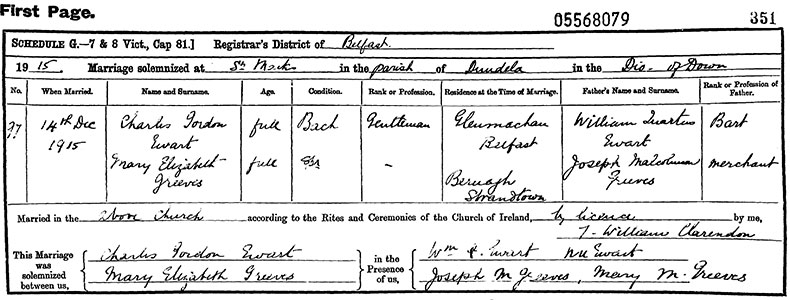 First Page.
05568079 351
SCHEDULE G.—7 & 8 Vict., Cap 81.] Registrar's District of Belfast
1915. Marriage solemnized at St Marks in the parish of Dundela in the Dio. of Down
No. When Married. Name and Surname. Age. Condition. Rank or Profession. Residence at the Time of Marriage. Father's Name and Surname. Rank or Profession of Father.
97 14th Dec Charles Gordon full Bach Gentleman Glenmachan William Quartus Bart
1915 Ewart Belfast Ewart
Mary Elizabeth full – Joseph Malcolmson merchant
Greeves Bernagh Greeves
Strandtown
Married in the above Church according to the Rites and Ceremonies of the Church of Ireland, by licence by me,
William Clarendon
This Marriage was solemnized between us, Charles Gordon Ewart in the Presence of us, Wm Q. Ewart Ewart
Mary Elizabeth Greeves Joseph M Greeves, Mary M. Greeves